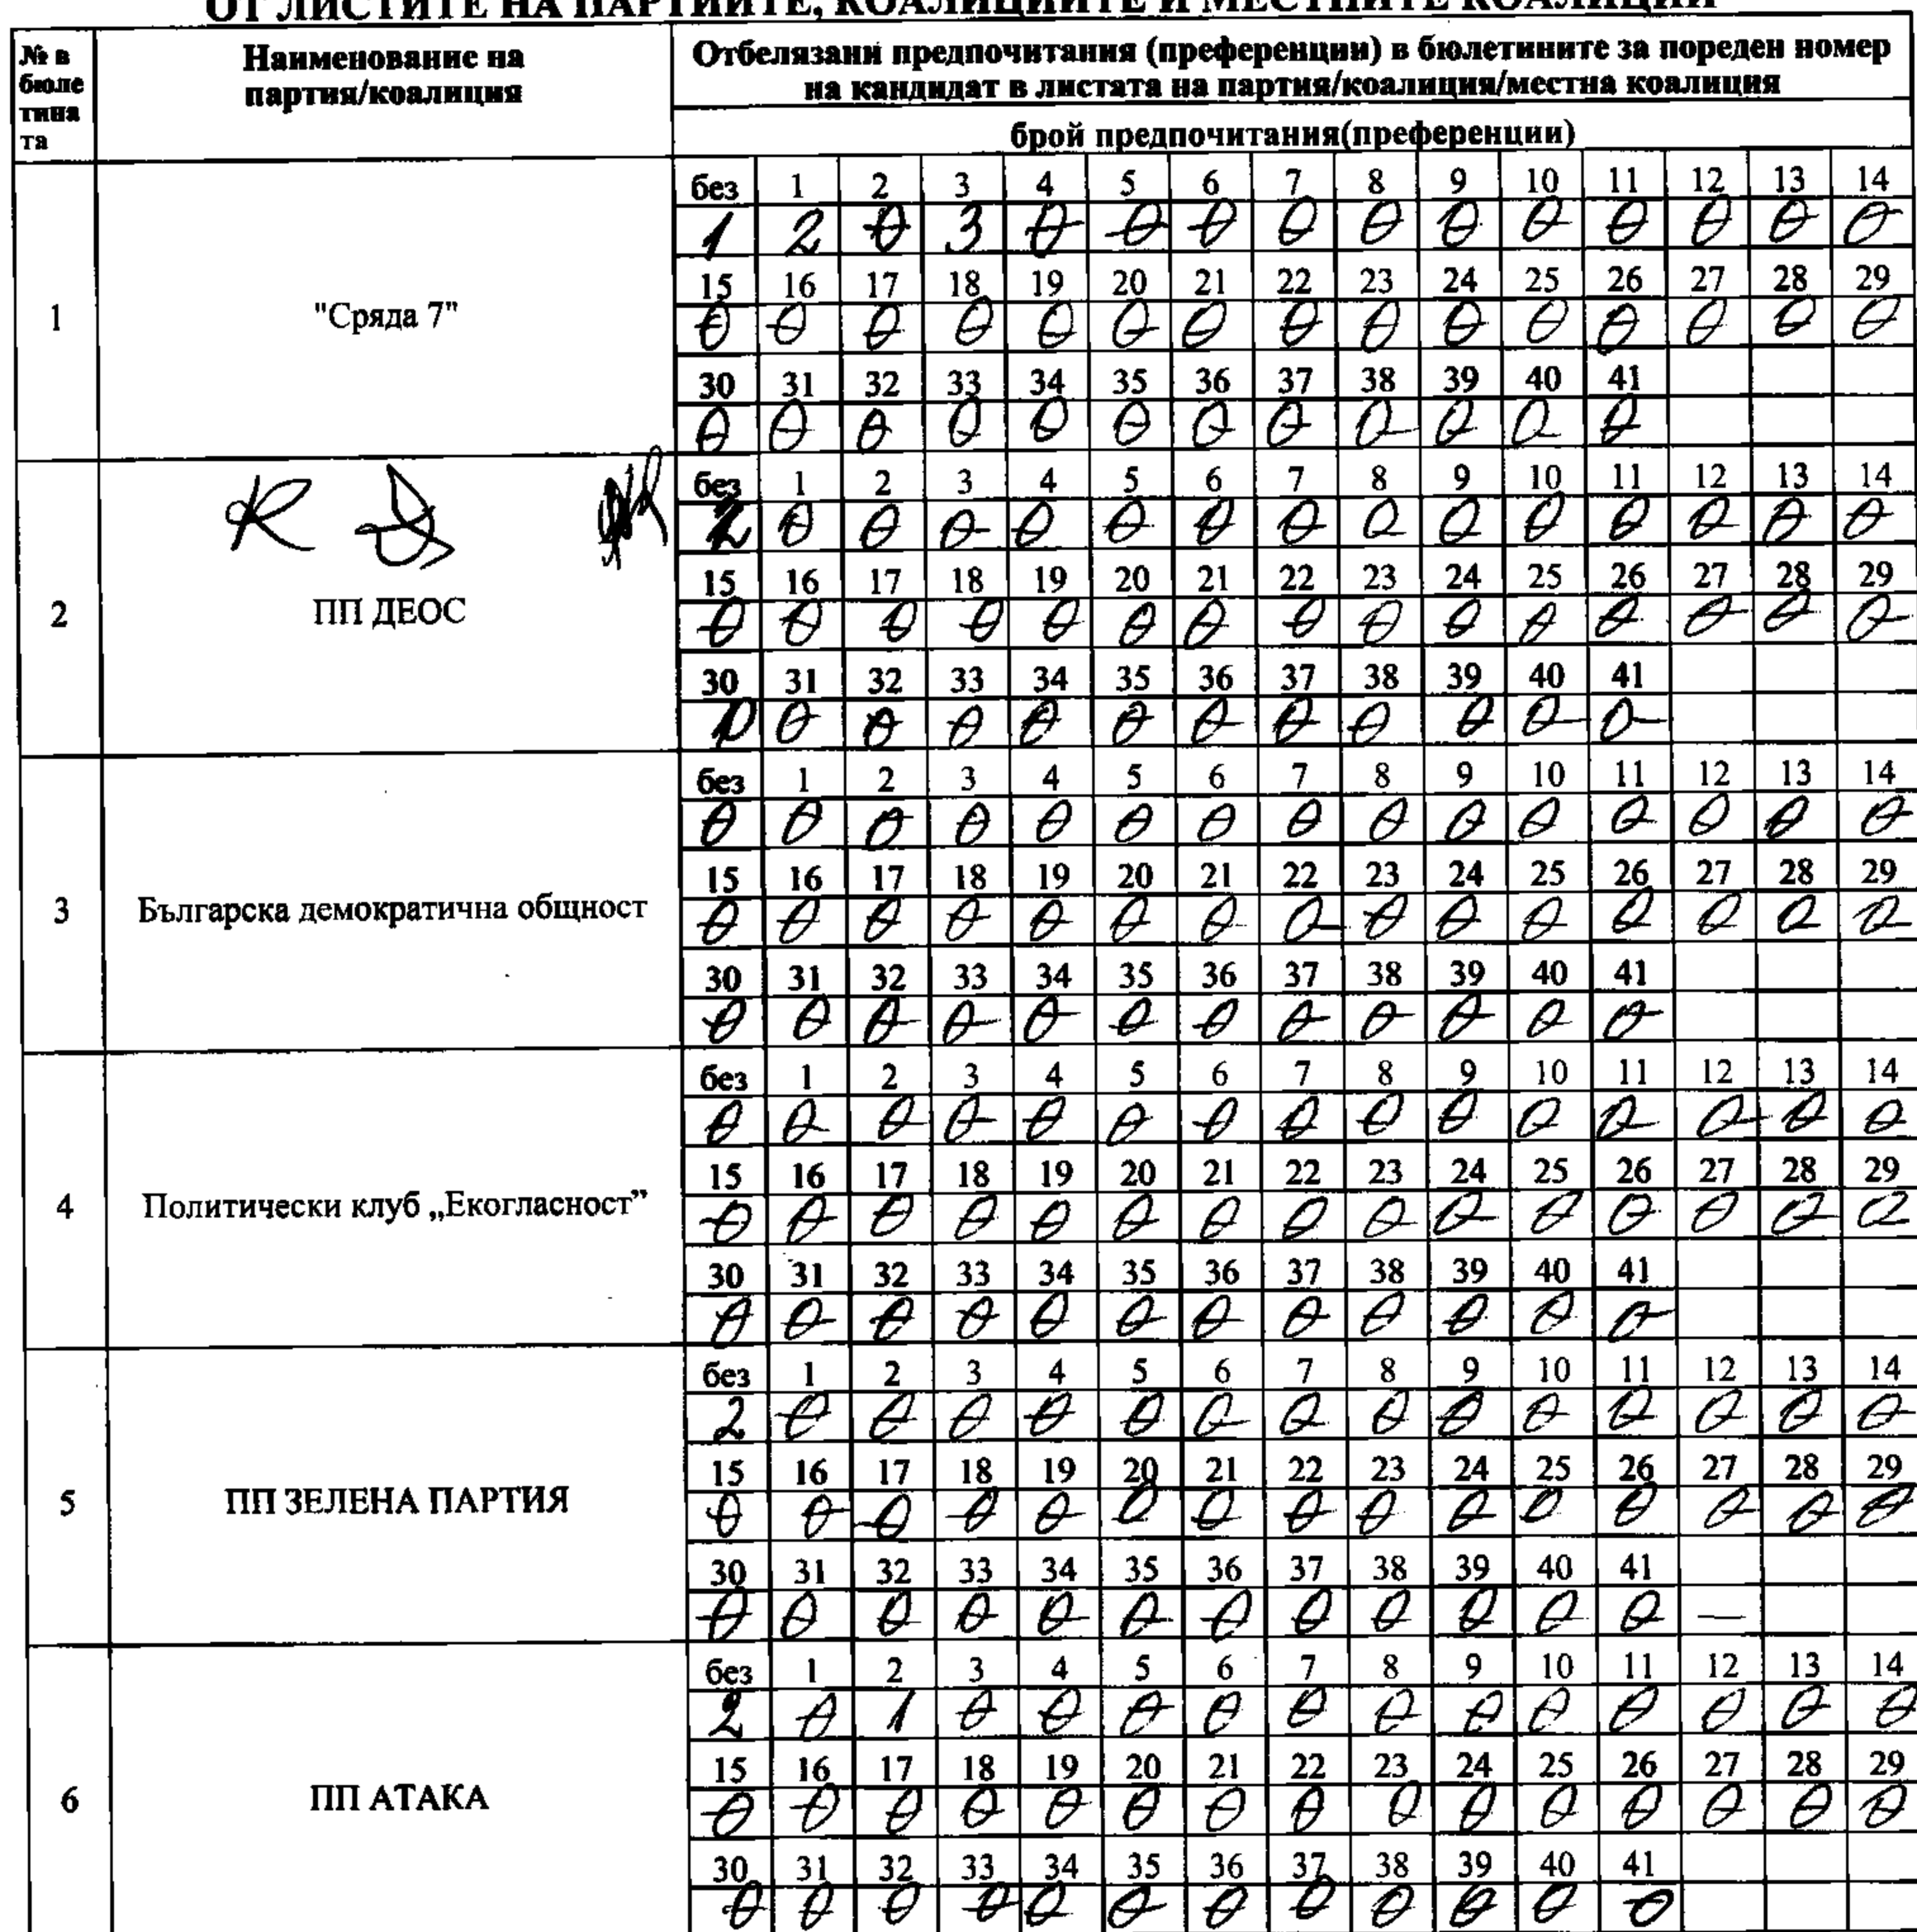 ОТ ЛИСТИТЕ НА ПАРТИИТЕ, КОАЛИЦИИТЕ И МЕСТНИТЕ КОАЛИЦИИ
№ в бюле тина та
Наименование на партия/коалиция
Отбелязани предпочитания (преференции) в бюлетините за пореден номер на кандидат в листата на партия/коалиция/местна коалиция
брой предпочитания(преференции)
1 "Сряда 7"
без 1 2 3 4 5 6 7 8 9 10 11 12 13 14
1 2 0 3 0 0 0 0 0 0 0 0 0 0 0
15 16 17 18 19 20 21 22 23 24 25 26 27 28 29
0 0 0 0 0 0 0 0 0 0 0 0 0 0 0
30 31 32 33 34 35 36 37 38 39 40 41
0 0 0 0 0 0 0 0 0 0 0 0
2 ПП ДЕОС
без 1 2 3 4 5 6 7 8 9 10 11 12 13 14
2 0 0 0 0 0 0 0 0 0 0 0 0 0 0
15 16 17 18 19 20 21 22 23 24 25 26 27 28 29
0 0 0 0 0 0 0 0 0 0 0 0 0 0 0
30 31 32 33 34 35 36 37 38 39 40 41
0 0 0 0 0 0 0 0 0 0 0
3 Българска демократична общност
без 1 2 3 4 5 6 7 8 9 10 11 12 13 14
0 0 0 0 0 0 0 0 0 0 0 0 0 0 0
15 16 17 18 19 20 21 22 23 24 25 26 27 28 29
0 0 0 0 0 0 0 0 0 0 0 0 0 0 0
30 31 32 33 34 35 36 37 38 39 40 41
0 0 0 0 0 0 0 0 0 0 0 0
4 Политически клуб „Екогласност”
без 1 2 3 4 5 6 7 8 9 10 11 12 13 14
0 0 0 0 0 0 0 0 0 0 0 0 0 0 0
15 16 17 18 19 20 21 22 23 24 25 26 27 28 29
0 0 0 0 0 0 0 0 0 0 0 0 0 0 0
30 31 32 33 34 35 36 37 38 39 40 41
0 0 0 0 0 0 0 0 0 0 0 0
5 ПП ЗЕЛЕНА ПАРТИЯ
без 1 2 3 4 5 6 7 8 9 10 11 12 13 14
2 0 0 0 0 0 0 0 0 0 0 0 0 0 0
15 16 17 18 19 20 21 22 23 24 25 26 27 28 29
0 0 0 0 0 0 0 0 0 0 0 0 0 0 0
30 31 32 33 34 35 36 37 38 39 40 41
0 0 0 0 0 0 0 0 0 0 0 0 —
6 ПП АТАКА
без 1 2 3 4 5 6 7 8 9 10 11 12 13 14
2 0 1 0 0 0 0 0 0 0 0 0 0 0 0
15 16 17 18 19 20 21 22 23 24 25 26 27 28 29
0 0 0 0 0 0 0 0 0 0 0 0 0 0 0
30 31 32 33 34 35 36 37 38 39 40 41
0 0 0 0 0 0 0 0 0 0 0 0